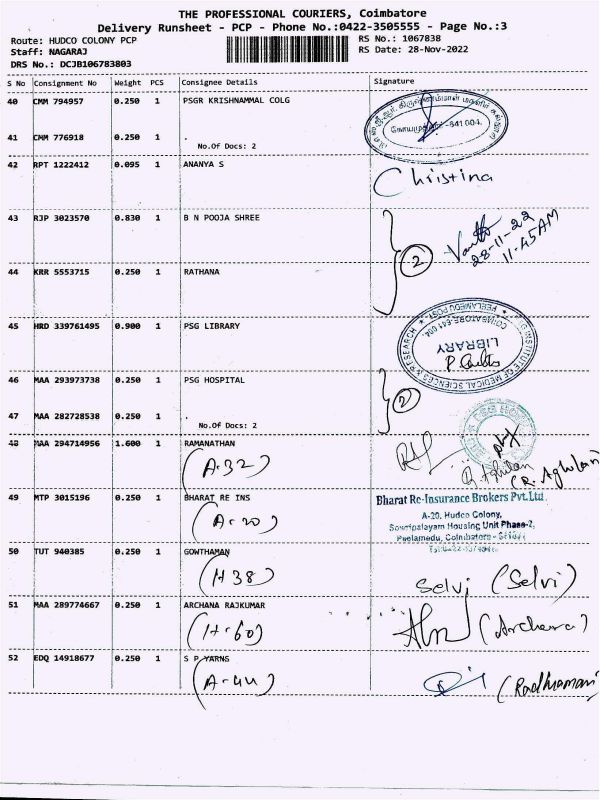 THE PROFESSIONAL COURIERS, Coimbatore
Delivery Runsheet - PCP - Phone No.:0422-3505555 - Page No.:3
Route: HUDCO COLONY PCP
RS No.: 1067838
Staff: NAGARAJ
RS Date: 28-Nov-2022
DRS No.: DCJB106783803
S No Consignment No Weight PCS Consignee Details Signature
40 CMM 794957 0.250 1 PSGR KRISHNAMMAL COLG
-641 004.
41 CMM 776918 0.250 1 .
No.Of Docs: 2
42 RPT 1222412 0.095 1 ANANYA S
Christina
43 RJP 3023570 0.830 1 B N POOJA SHREE
28-11-22
11-45AM
2
44 KRR 5553715 0.250 1 RATHANA
45 HRD 339761495 0.900 1 PSG LIBRARY
INSTITUTE OF MEDICAL SCIENCES & RESEARCH
PEELAMEDU POST,
COIMBATORE-641 004.
LIBRARY
46 MAA 293973738 0.250 1 PSG HOSPITAL
2
47 MAA 282728538 0.250 1 .
No.Of Docs: 2
48 MAA 294714956 1.600 1 RAMANATHAN
(A-32)
(R. Aghilan)
49 MTP 3015196 0.250 1 BHARAT RE INS
(A-20)
Bharat Re-Insurance Brokers Pvt.Ltd.
A-20, Hudco Colony,
Sowripalayam Housing Unit Phase-2,
Peelamedu, Coimbatore -
50 TUT 940385 0.250 1 GOWTHAMAN
(H38)
Selvi (Selvi)
51 MAA 289774667 0.250 1 ARCHANA RAJKUMAR
(H-60)
(Archana)
52 EDQ 14918677 0.250 1 S P YARNS
(A-44)
(Radhamani)